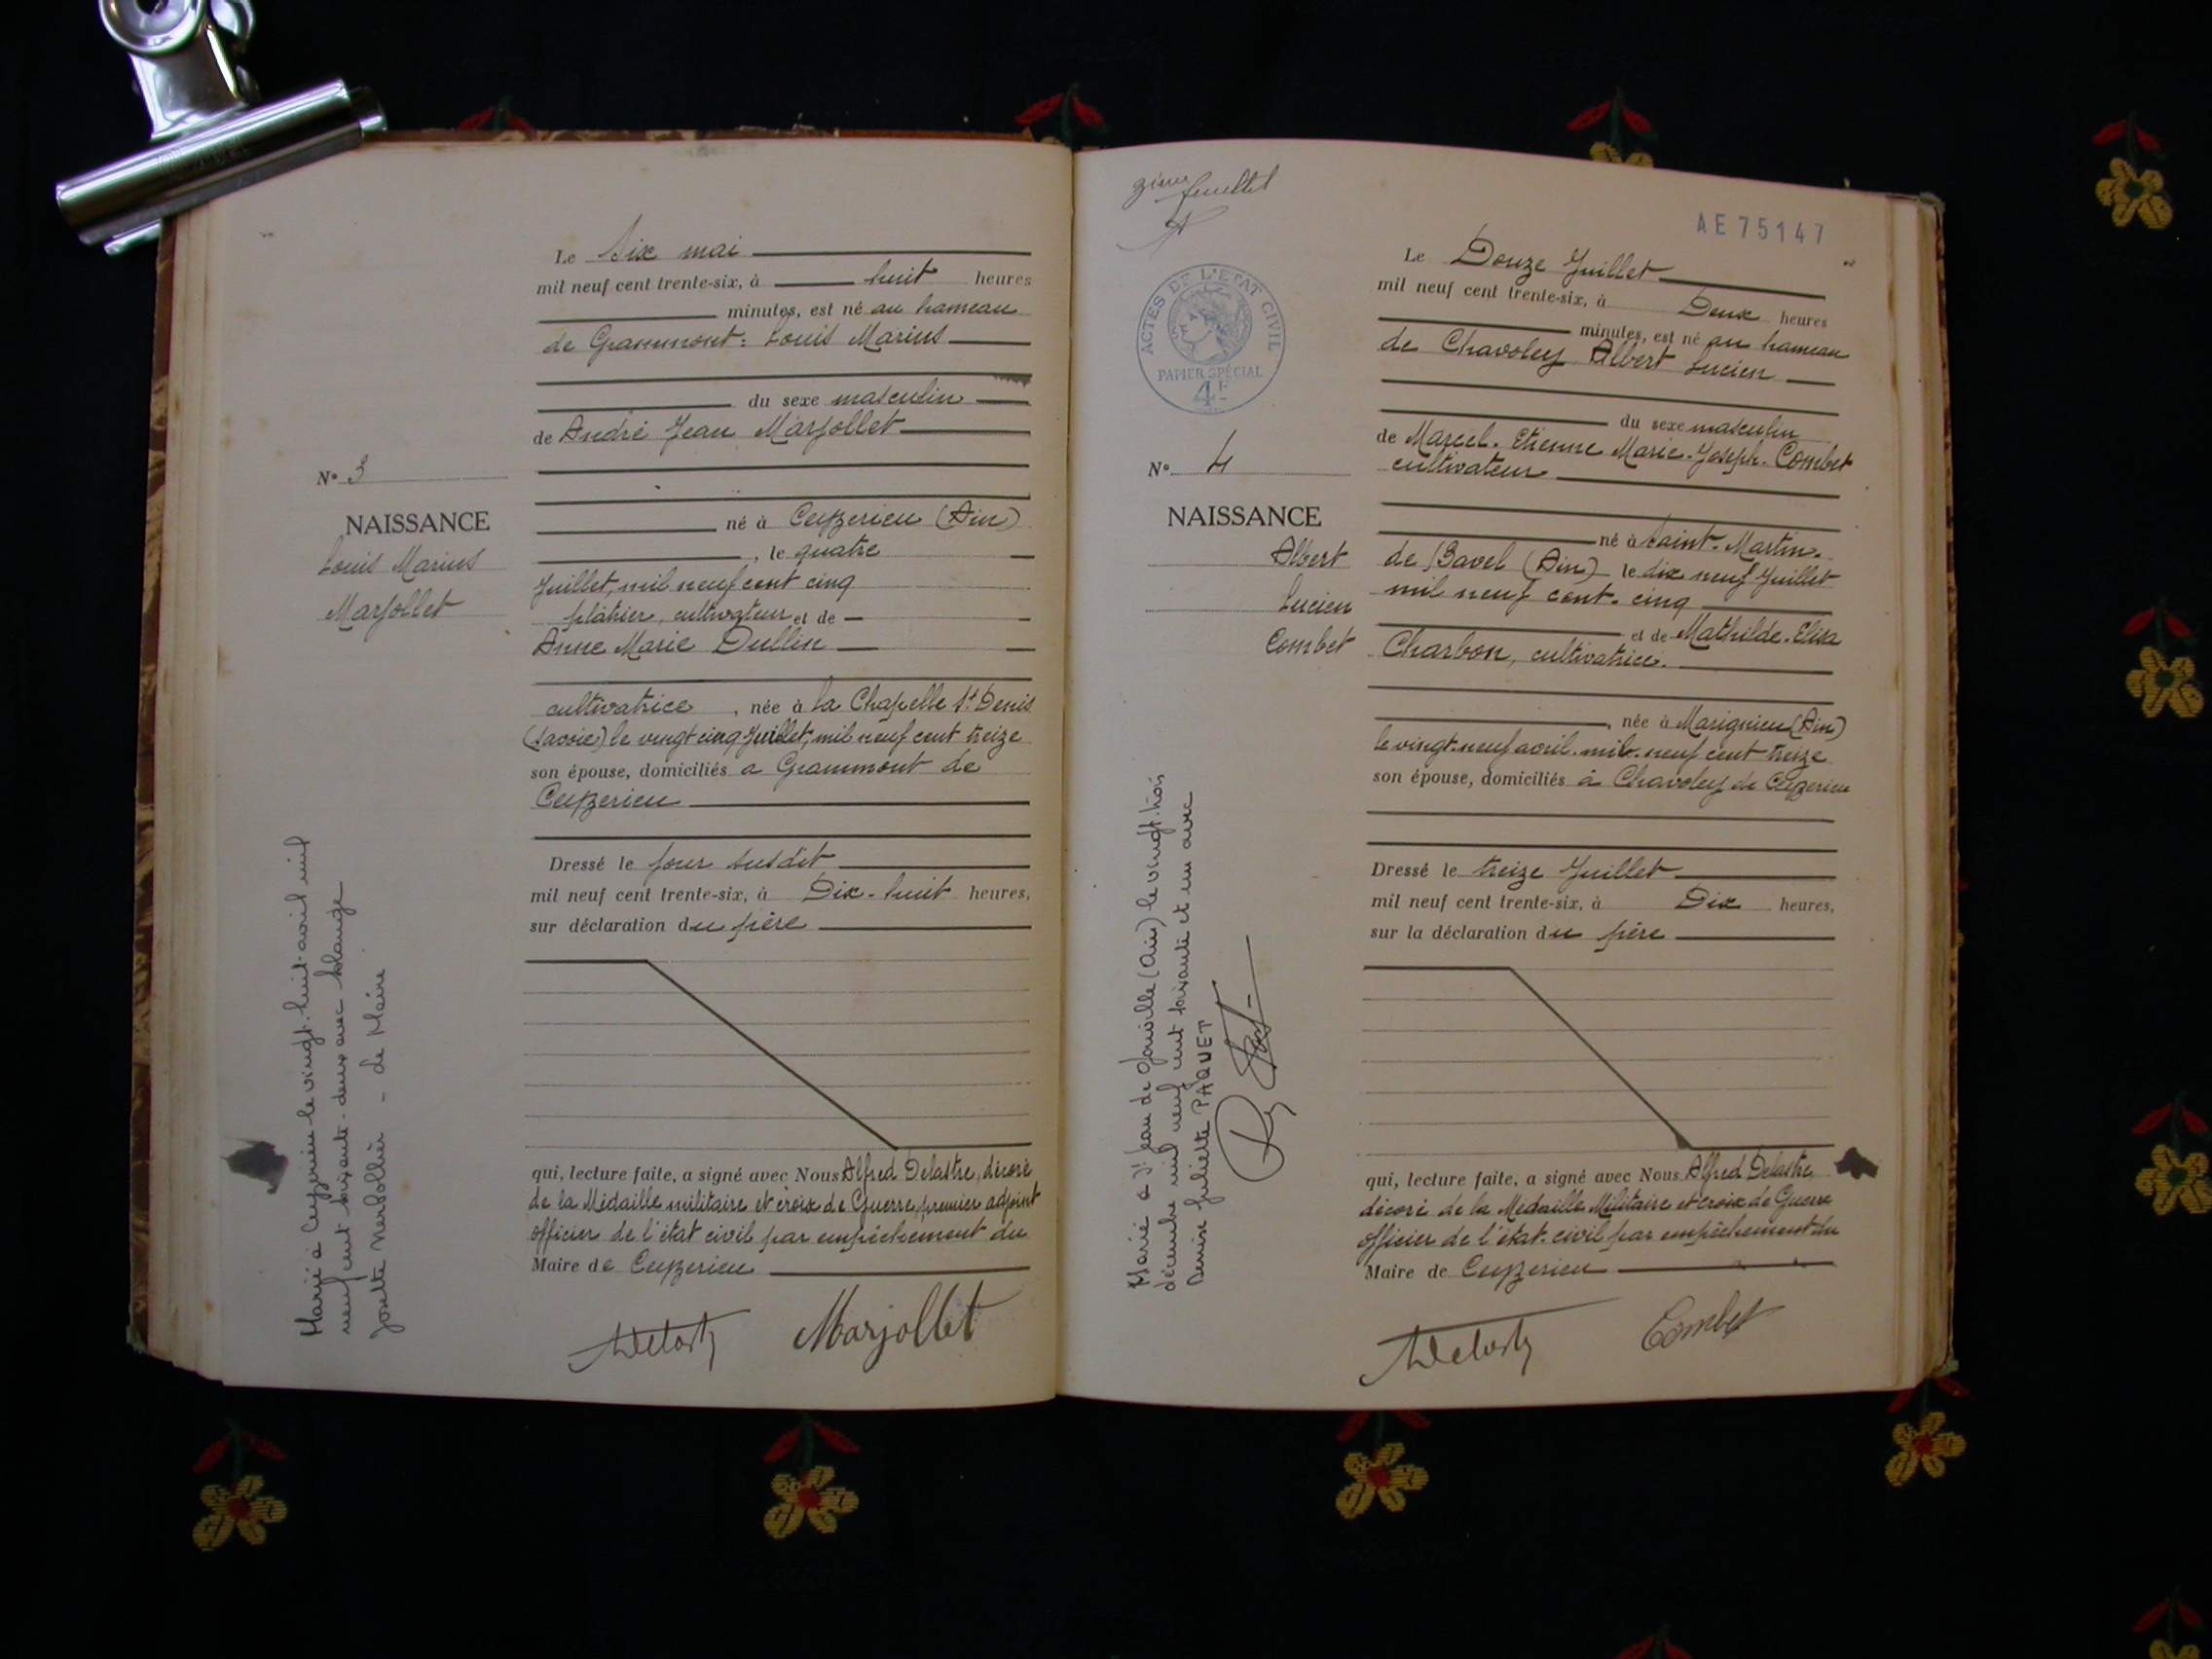 Le Six mai
mil neuf cent trente-six, à huit heures
minutes, est né au hameau
de Grammont: Louis Marius
du sexe masculin
de André Jean Marjollet
N° 3
NAISSANCE
Louis Marius
Marjollet
né à Ceyzerieu (Ain)
, le quatre
Juillet, mil neuf cent cinq
plâtrier, cultivateur et de
Anne Marie Dullin
cultivatrice , née à la Chapelle St Denis
(Savoie) le vingt cinq Juillet, mil neuf cent treize
son épouse, domiciliés a Grammont de
Ceyzerieu
Dressé le jour susdit
mil neuf cent trente-six, à Dix-huit heures,
sur déclaration du père
qui, lecture faite, a signé avec Nous Alfred Delastre, décoré
de la Médaille militaire et croix de Guerre, premier adjoint
officier de l'état civil par empêchement du
Maire de Ceyzerieu
Marjollet
Marié à Ceyzerieu le vingt-huit avril mil
neuf cent soixante-deux avec Solange
Le Maire
2ième feuillet
AE75147
ACTES DE L'ETAT CIVIL
PAPIER SPÉCIAL
4F
Le Douze Juillet
mil neuf cent trente-six, à Deux heures
minutes, est né au hameau
de Chavoley Albert Lucien
du sexe masculin
de Marcel. Etienne Marie. Joseph. Combet
cultivateur
N° 4
NAISSANCE
Albert
Lucien
Combet
né à Saint. Martin.
de Bavel (Ain) le dix neuf Juillet
mil neuf cent. cinq
et de Mathilde. Elisa
Charbon, cultivatrice.
, née à Marignieu (Ain)
le vingt-neuf avril. mil. neuf cent treize
son épouse, domiciliés à Chavoley de Ceyzerieu
Dressé le treize Juillet
mil neuf cent trente-six, à Dix heures,
sur la déclaration du père
qui, lecture faite, a signé avec Nous Alfred Delastre,
décoré de la Médaille Militaire et croix de Guerre
officier de l'état. civil par empêchement du
Maire de Ceyzerieu
Combet
Marié à St Jean de Gonville (Ain) le vingt-trois
décembre mil neuf cent soixante et un avec
Denise Juliette PAQUET